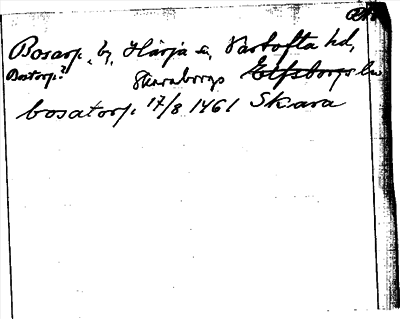 Bosarp, by, Härja sn, Vartofta hd,
Botorp? Skaraborgs Elfsborgs län
bosatorp 17/8 1461 Skara